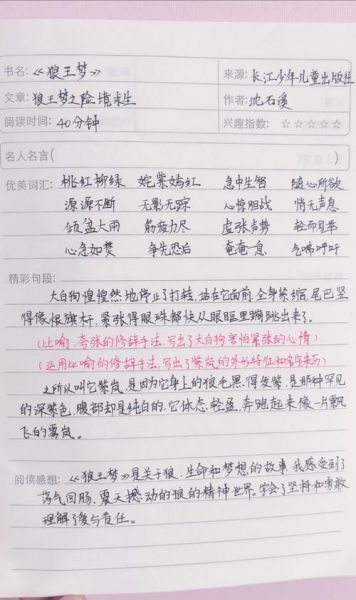 书名:《狼王梦》 来源:长江少年儿童出版社
文章:狼王梦之险境求生 作者:沈石溪
阅读时间:40分钟 兴趣指数:☆☆☆☆☆
名人名言()
优美词汇: 桃红柳绿 姹紫嫣红 急中生智 随心所欲
源源不断 无影无踪 心惊胆战 悄无声息
倾盆大雨 筋疲力尽 虚张声势 轻而易举
心急如焚 争先恐后 奄奄一息 气喘吁吁
精彩句段:
大白狗惶惶然地停止了打转,站在它面前,全身紧缩,尾巴坚
得像根旗杆,紧张得眼珠都快从眼眶里蹦跳出来了。
(比喻、夸张的修辞手法,写出了大白狗害怕紧张的心情)
(运用比喻的修辞手法,写出了紫岚的外形特征和名字来历)
之所以叫它紫岚,是因为它身上的狼毛黑得发紫,是那种罕见
的深紫色,腹部却是纯白的,它体态轻盈,奔跑起来像一片飘
飞的雾岚。
阅读感想:《狼王梦》是关于狼、生命和梦想的故事,我感受到了
荡气回肠、震天撼动的狼的精神世界。学会了坚持和勇敢
理解了爱与责任。